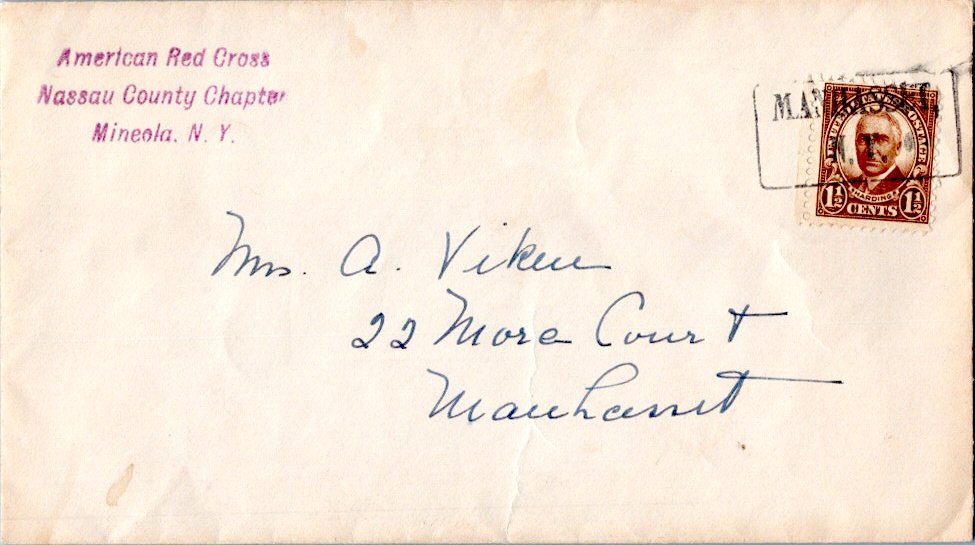 American Red Cross
Nassau County Chapter
Mineola, N. Y.
MANHASSET,
N.Y.
UNITED STATES POSTAGE
HARDING
1½ CENTS 1½
Mrs. A. Viken
22 Mora Court
Manhasset